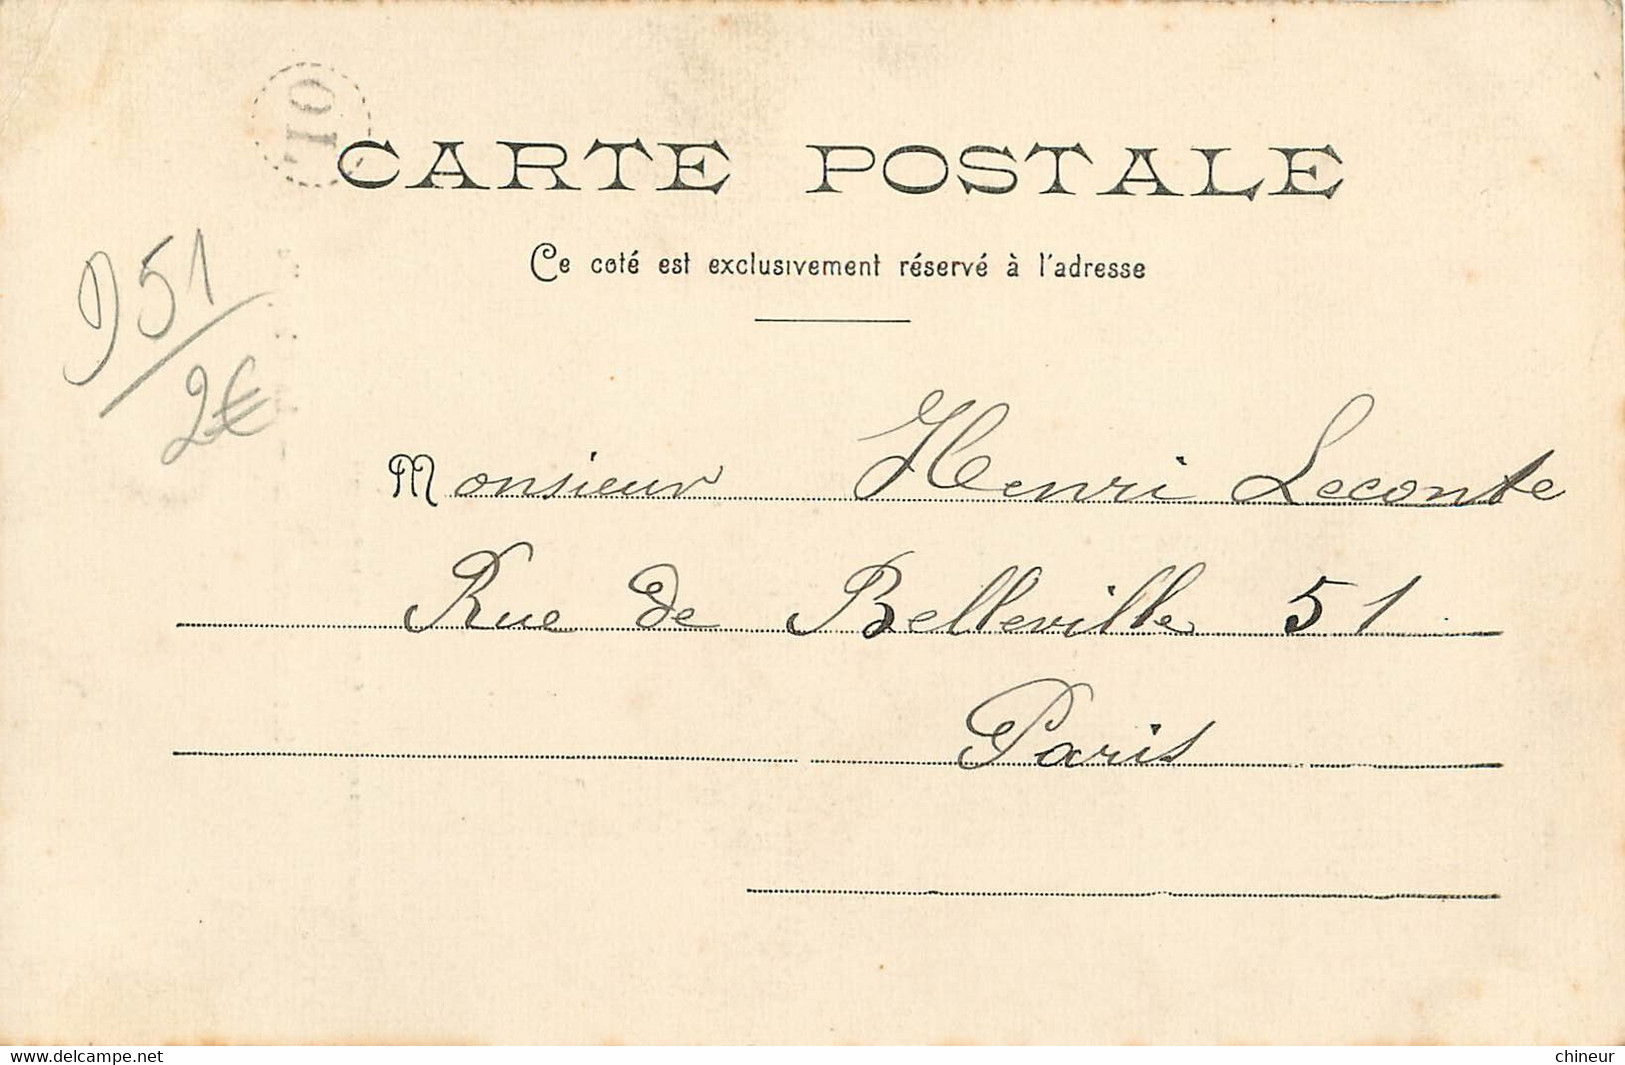 10
CARTE POSTALE
Ce coté est exclusivement réservé à l'adresse
951
2€
Monsieur Henri Leconte
Rue de Belleville 51
Paris
www.delcampe.net
chineur